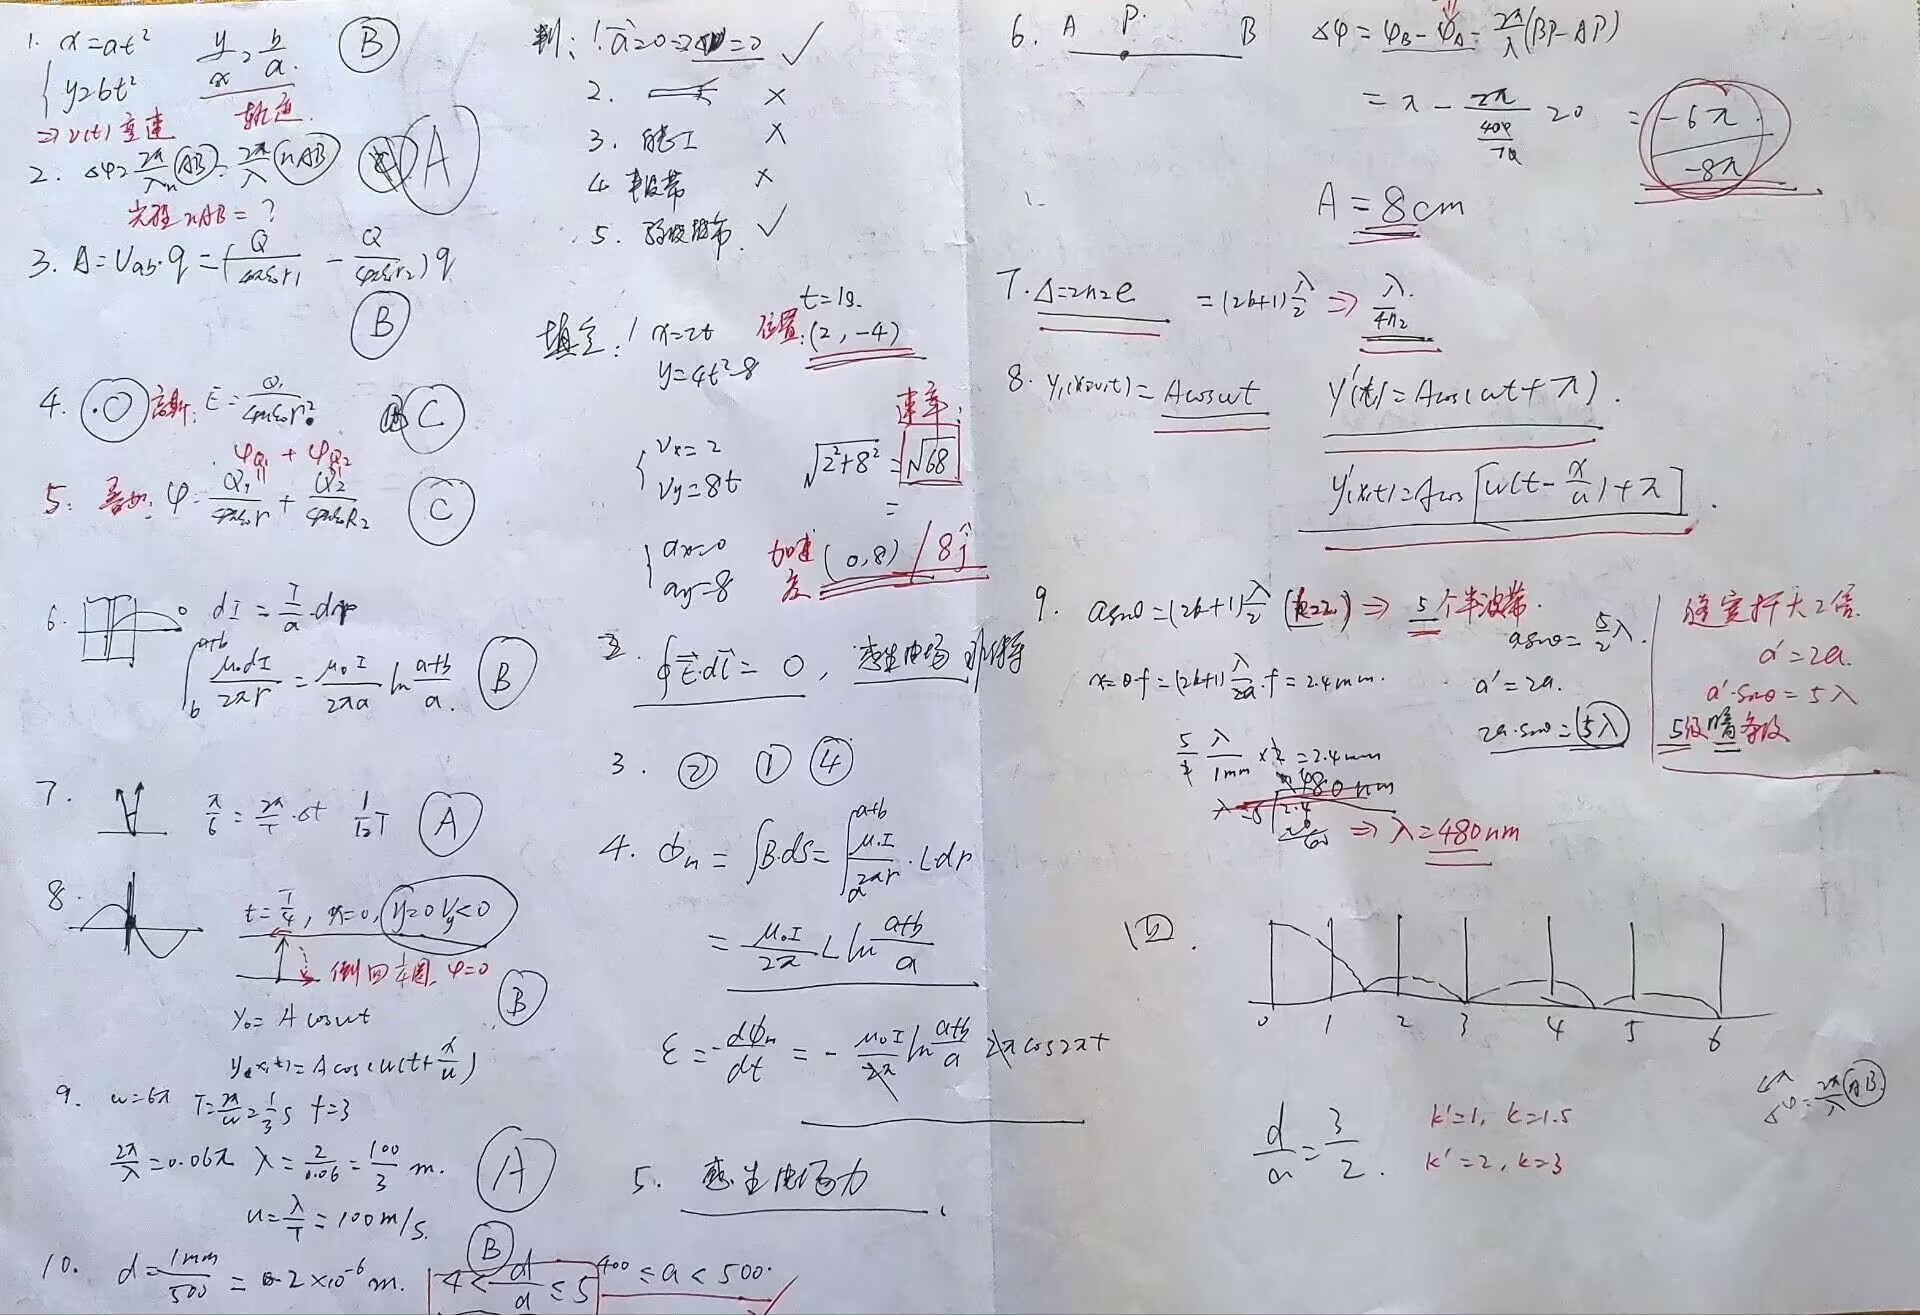 1. x=at²
y=bt²
y/x = b/a
B
轨迹
⇒ v(t) 变速
2. Δφ = 2π/λn (AB) = 2π/λ (nAB)
A
光程 nAB = ?
3. A = Uab·q = (Q/4πε₀r₁ - Q/4πε₀r₂) q
B
4. 高斯: E = Q₁/4πε₀r²
C
φQ₁ + φQ₂
5. 叠加: φ = Q₁/4πε₀r + Q₂/4πε₀R₂
C
6. dI = I/a · dr
∫ b a+b μ₀dI/2πr = μ₀I/2πa ln a+b/a.
B
7. π/6 = 2π/T · Δt 1/12 T
A
8. t = T/4, x=0, y=0 Vy<0
倒回 1/4 圆, φ=0
B
y₀ = A cosωt
y(x,t) = A cosω(t + x/u)
9. ω=6π T = 2π/ω = 1/3 s f=3
2π/λ = 0.06π λ = 2/0.06 = 100/3 m.
A
u = λ/T = 100m/s.
10. d = 1mm/500 = 2×10⁻⁶ m.
B
4 < d/a ≤ 5
400 ≤ a < 500.
判: 1. a=0
✓
2. ×
3. 能 ×
4. 半波带 ×
5. 半波带. ✓
填空: 1 x=2t
y=4t²-8
t=1s.
位置: (2, -4)
Vx=2
Vy=8t
√2²+8² = √68
速率:
=
ax=0
ay=8
加速度 (0,8) / 8j
2. ∮E·dl = 0, 感生电场 非保守
3. ② ① ④
4. Φm = ∫B·ds = ∫ a a+b μ₀I/2πr · Ldr
= μ₀I/2π L ln a+b/a
ε = -dΦm/dt = - μ₀I/2π ln a+b/a 2π cos2πt
5. 感生电场力
6. A P. B
Δφ = φB - φA - 2π/λ (BP-AP)
= π - 2π/ 20 = -6π
-8π
A = 8cm
7. Δ=2n₂e = (2k+1) λ/2 ⇒ λ/4n₂
8. = Acosωt
y'(t) = Acos(ωt+π).
y'(x,t) = Acos[ω(t - x/u) + π].
9. asinθ = (2k+1) λ/2 (k=2) ⇒ 5个半波带.
asinθ = 5/2 λ.
x=θ·f = (2k+1) λ/2a · f = 2.4mm.
a'=2a.
2a·sinθ = 5λ
λ/1mm = 2.4mm
⇒ λ=480nm
缝宽扩大2倍
a'=2a.
a'·sinθ = 5λ
5级暗条纹
0 1 2 3 4 5 6
d/a = 3/2.
k'=1, k=1.5
k'=2, k=3
Δφ = 2π/λ AB